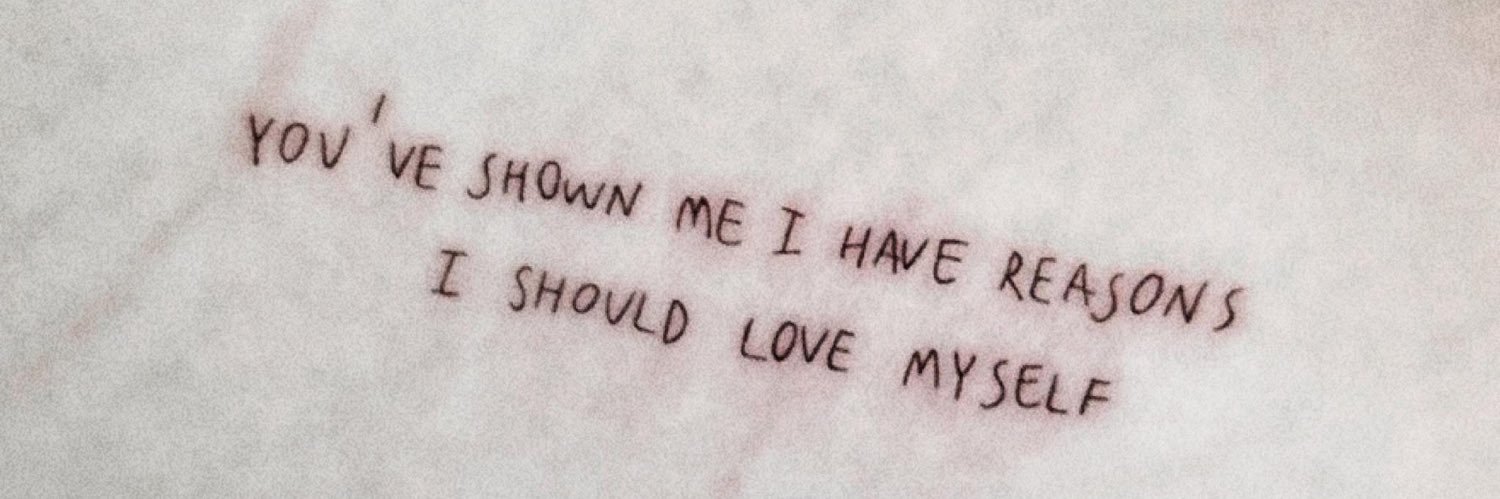 YOU'VE SHOWN ME I HAVE REASONS
I SHOULD LOVE MYSELF